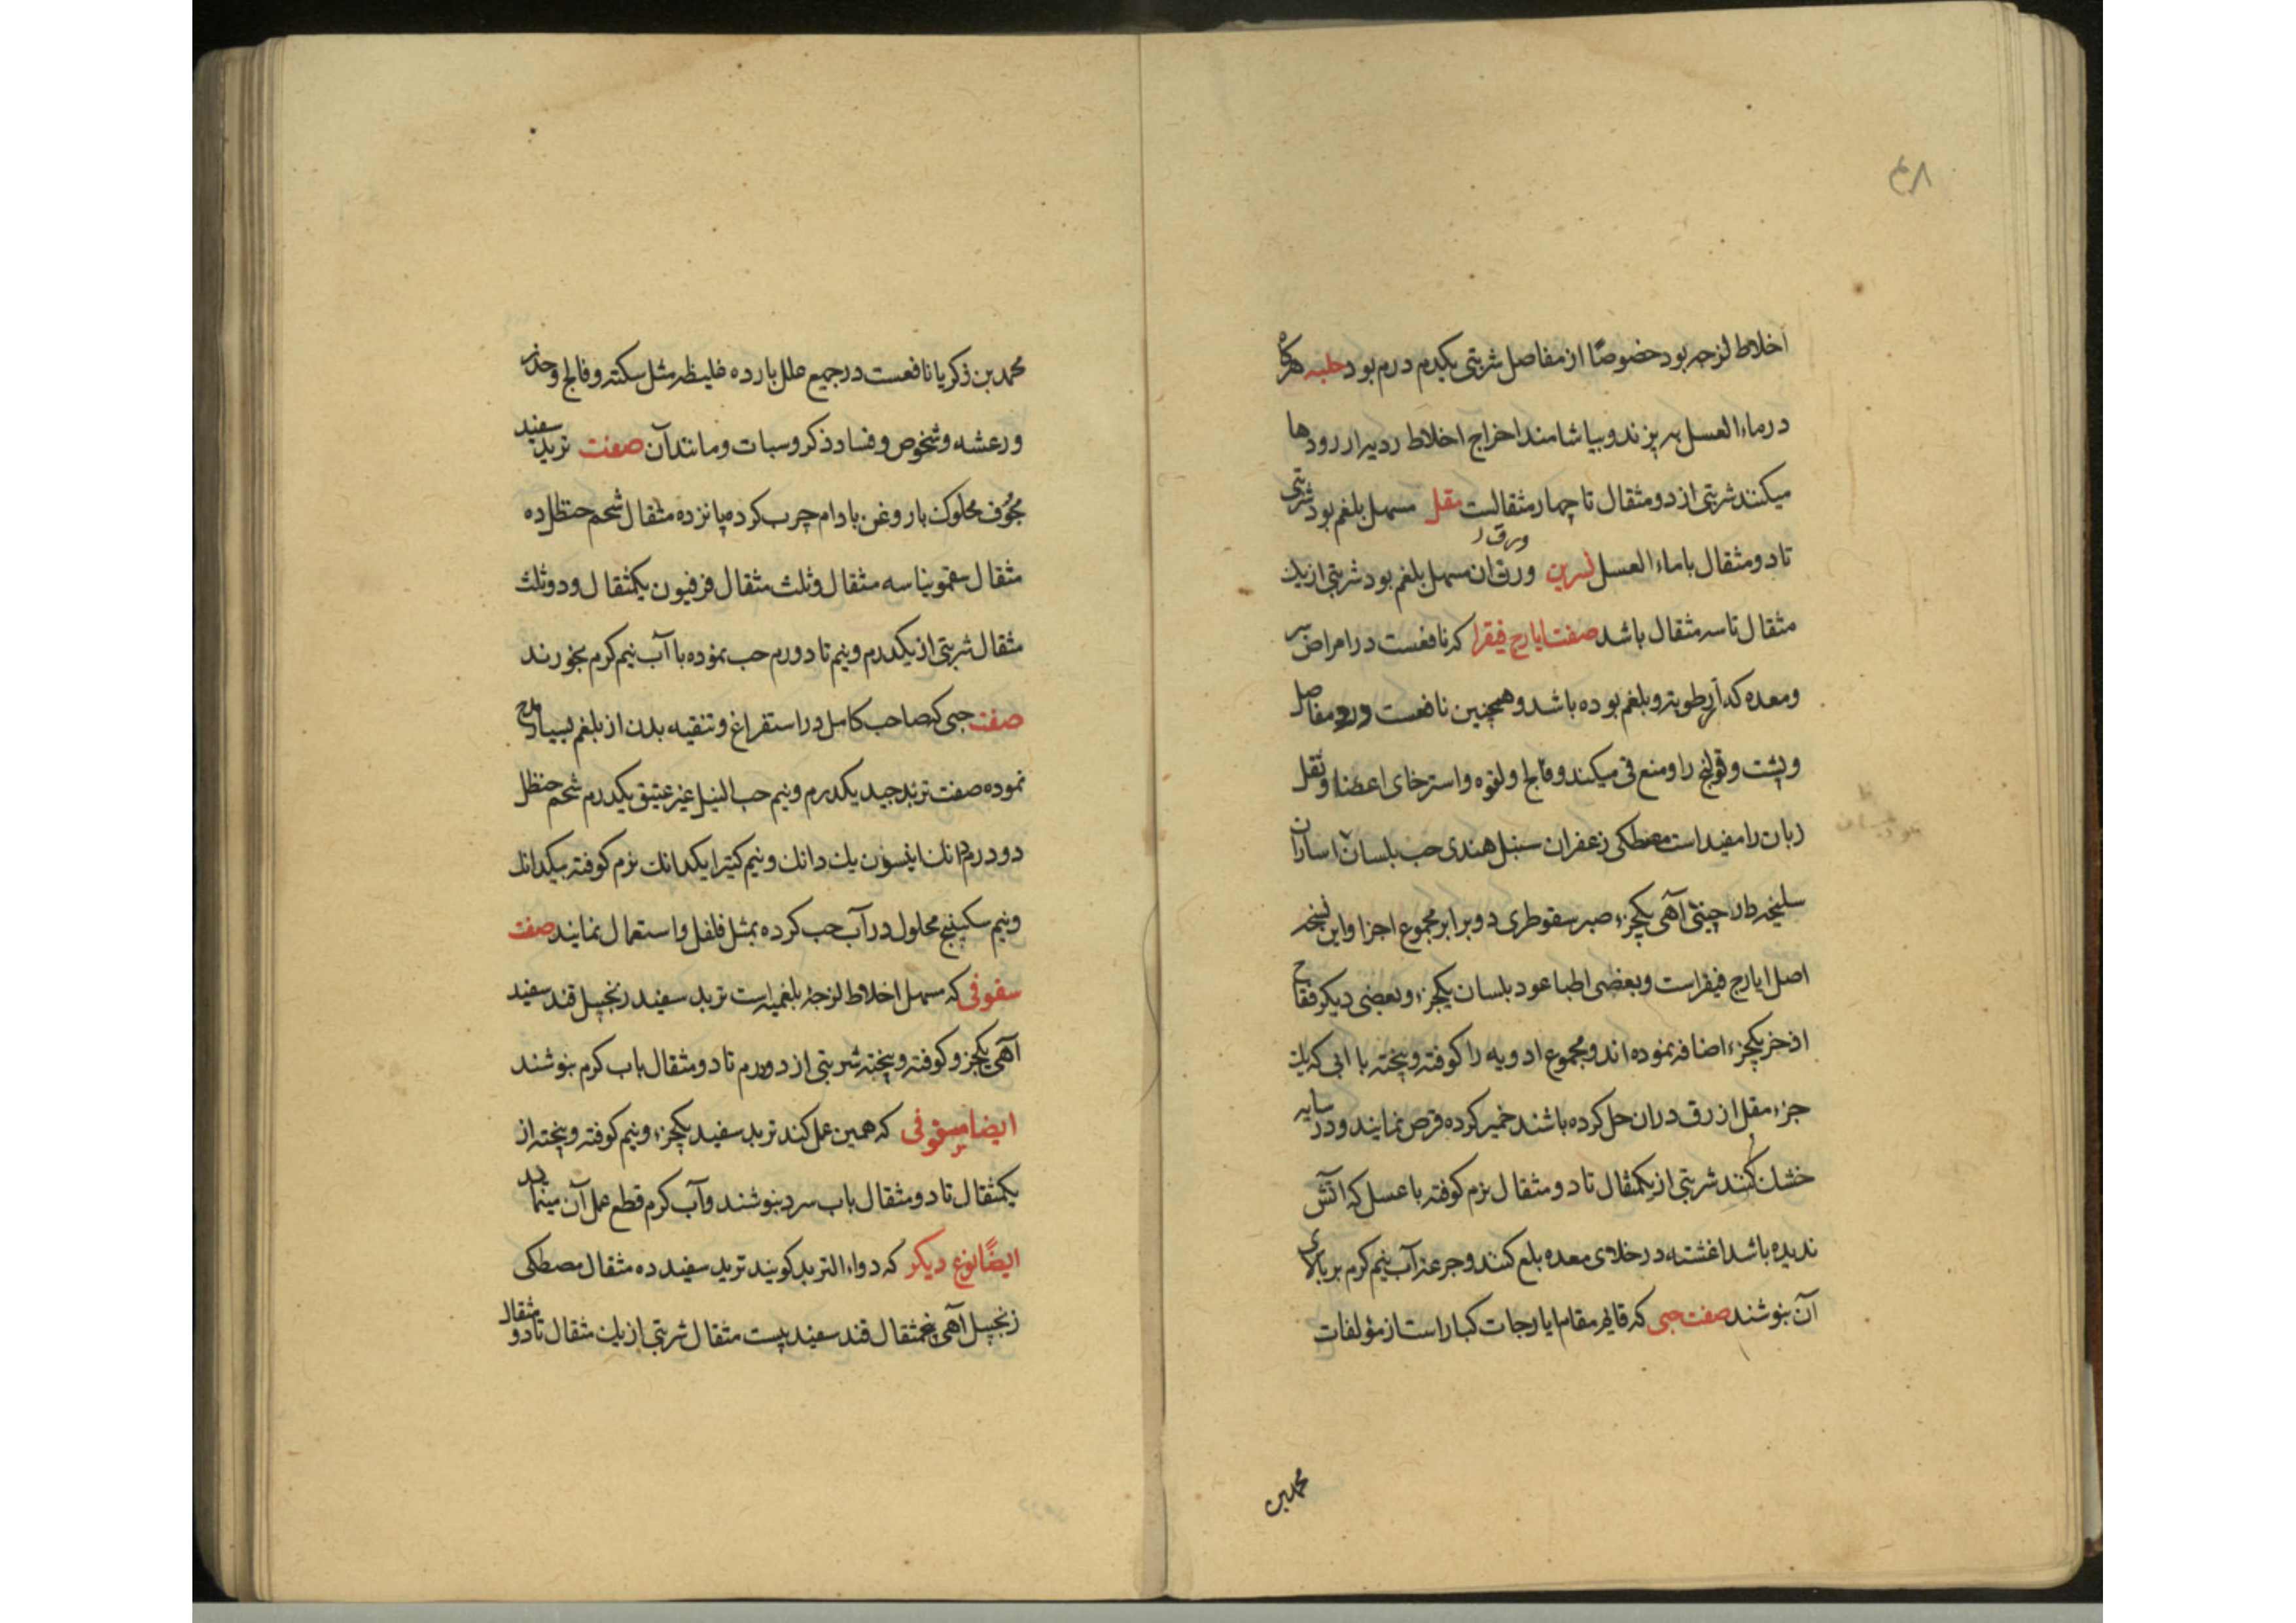 ۴۸
اخلاط لزجه بود خصوصًا از مفاصل شربتی یکدرم درم بود حلبه هرکاه
در ماء العسل به پزند و بیاشامند اخراج اخلاط ردیه از رودها
میکنند شربتی از دو مثقال تا چهار مثقالست مقل مسهل بلغم بود شربتی
تا دو مثقال با ماء العسل نسرین ورق ان مسهل بلغم بود شربتی از یک
مثقال تا سه مثقال باشد صفت ایارج فیقرا که نافعست در امراض سر
و معده که از رطوبت و بلغم بوده باشد و همچنین نافعست درد مفاصل
و پشت و قولنج را و منع قی میکند و فالج و لقوه و استرخای اعضا و ثقل
زبان را مفید است مصطکی زعفران سنبل هندی حب بلسان اسارون
سلیخه دار چینی آهی یکجزء صبر سقوطری دو برابر مجموع اجزا و این نسخه
اصل ایارج فیقراست و بعضی اطبا عود بلسان یکجزء و بعضی دیکر فقاح
اذخر یکجزء اضافه نموده اند و مجموع ادویه را کوفته و بیخته با ابی که یک
جزء مقل ازرق در ان حل کرده باشند خمیر کرده قرص نمایند و در سایه
خشک کنند شربتی از یکمثقال تا دو مثقال نرم کوفته با عسل که اتش
ندیده باشد اغشته در خلای معده بلع کنند و جرعه آب نیم کرم بر بالای
آن بنوشند صفت حبی که قایم مقام ایارجات کبار است از مؤلفات
محمد بن
محمد بن زکریا نافعست در جمیع علل بارده غلیظه مثل سکته و فالج و خدر
و رعشه و شخوص و فساد ذکر و سبات و مانند آن صفت تربد سفید
مجوف محکوک با روغن بادام چرب کرده پانزده مثقال شحم حنظل ده
مثقال سقمونیا سه مثقال و ثلث مثقال فرفیون یکمثقال و دو ثلث
مثقال شربتی از یکدرم و نیم تا دو درم حب نموده با آب نیم کرم بخورند
صفت حبی که صاحب کامل در استفراغ و تنقیه بدن از بلغم بسیار مدح
نموده صفت تربد جید یکدرم و نیم حب النیل غیر عتیق یکدرم شحم حنظل
دو درم دانک انیسون یک دانک و نیم کتیرا یکدانک نرم کوفته بیکدانک
و نیم سکبینج محلول در آب حب کرده بمثل فلفل و استعمال نمایند صفت
سفوفی که مسهل اخلاط لزجه بلغمیه است تربد سفید زنجبیل قند سفید
آهی یکجزو کوفته و بیخته شربتی از دو درم تا دو مثقال باب کرم بنوشند
ایضا سفوفی که همین عمل کند تربد سفید یکجزء و نیم کوفته و بیخته از
یکمثقال تا دو مثقال باب سرد بنوشند و آب کرم قطع عمل آن مینماید
ایضًا نوع دیکر که دواء التربد کویند تربد سفید ده مثقال مصطکی
زنجبیل آهی پنجمثقال قند سفید بیست مثقال شربتی از یک مثقال تا دو مثقال